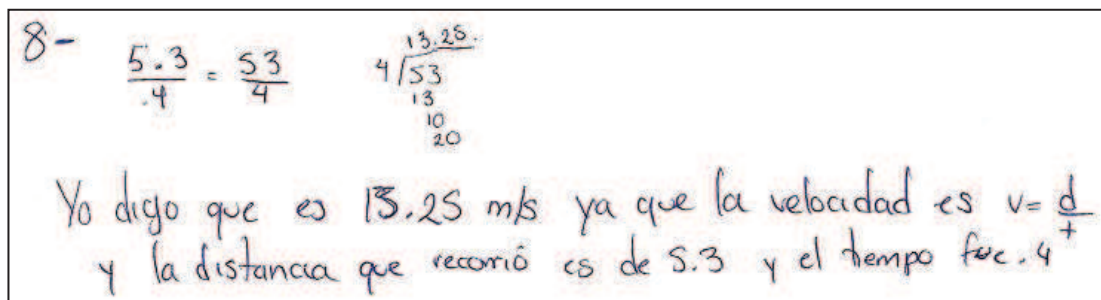 8-
5.3/.4 = 53/4
13.25.
4/53
13
10
20
Yo digo que es 13.25 m/s ya que la velocidad es v= d/t
y la distancia que recorrió es de 5.3 y el tiempo fue .4